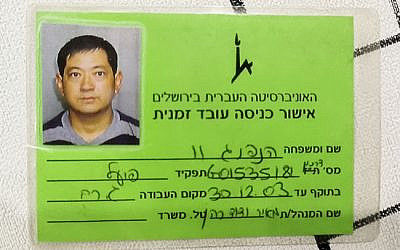 האוניברסיטה העברית בירושלים
אישור כניסה עובד זמנית
שם ומשפחה הנפנג וו
מס' ת 601535181 תפקיד פועל
בתוקף עד 30.12.03 מקום העבודה ג. רם
שם המנהל/ת טל. משרד